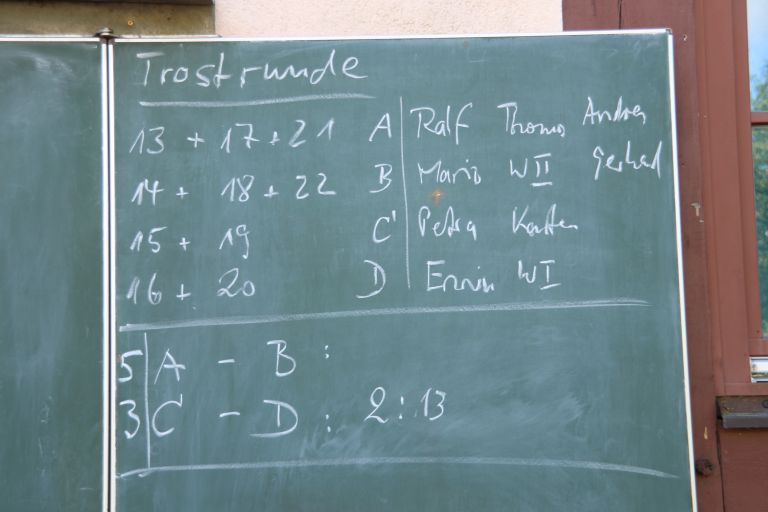 Trostrunde
13 + 17 + 21 A Ralf Thomas Andrea
14 + 18 + 22 B Mario WII Gerhard
15 + 19 C Petra Karsten
16 + 20 D Erwin WI
5 A - B :
3 C - D : 2:13